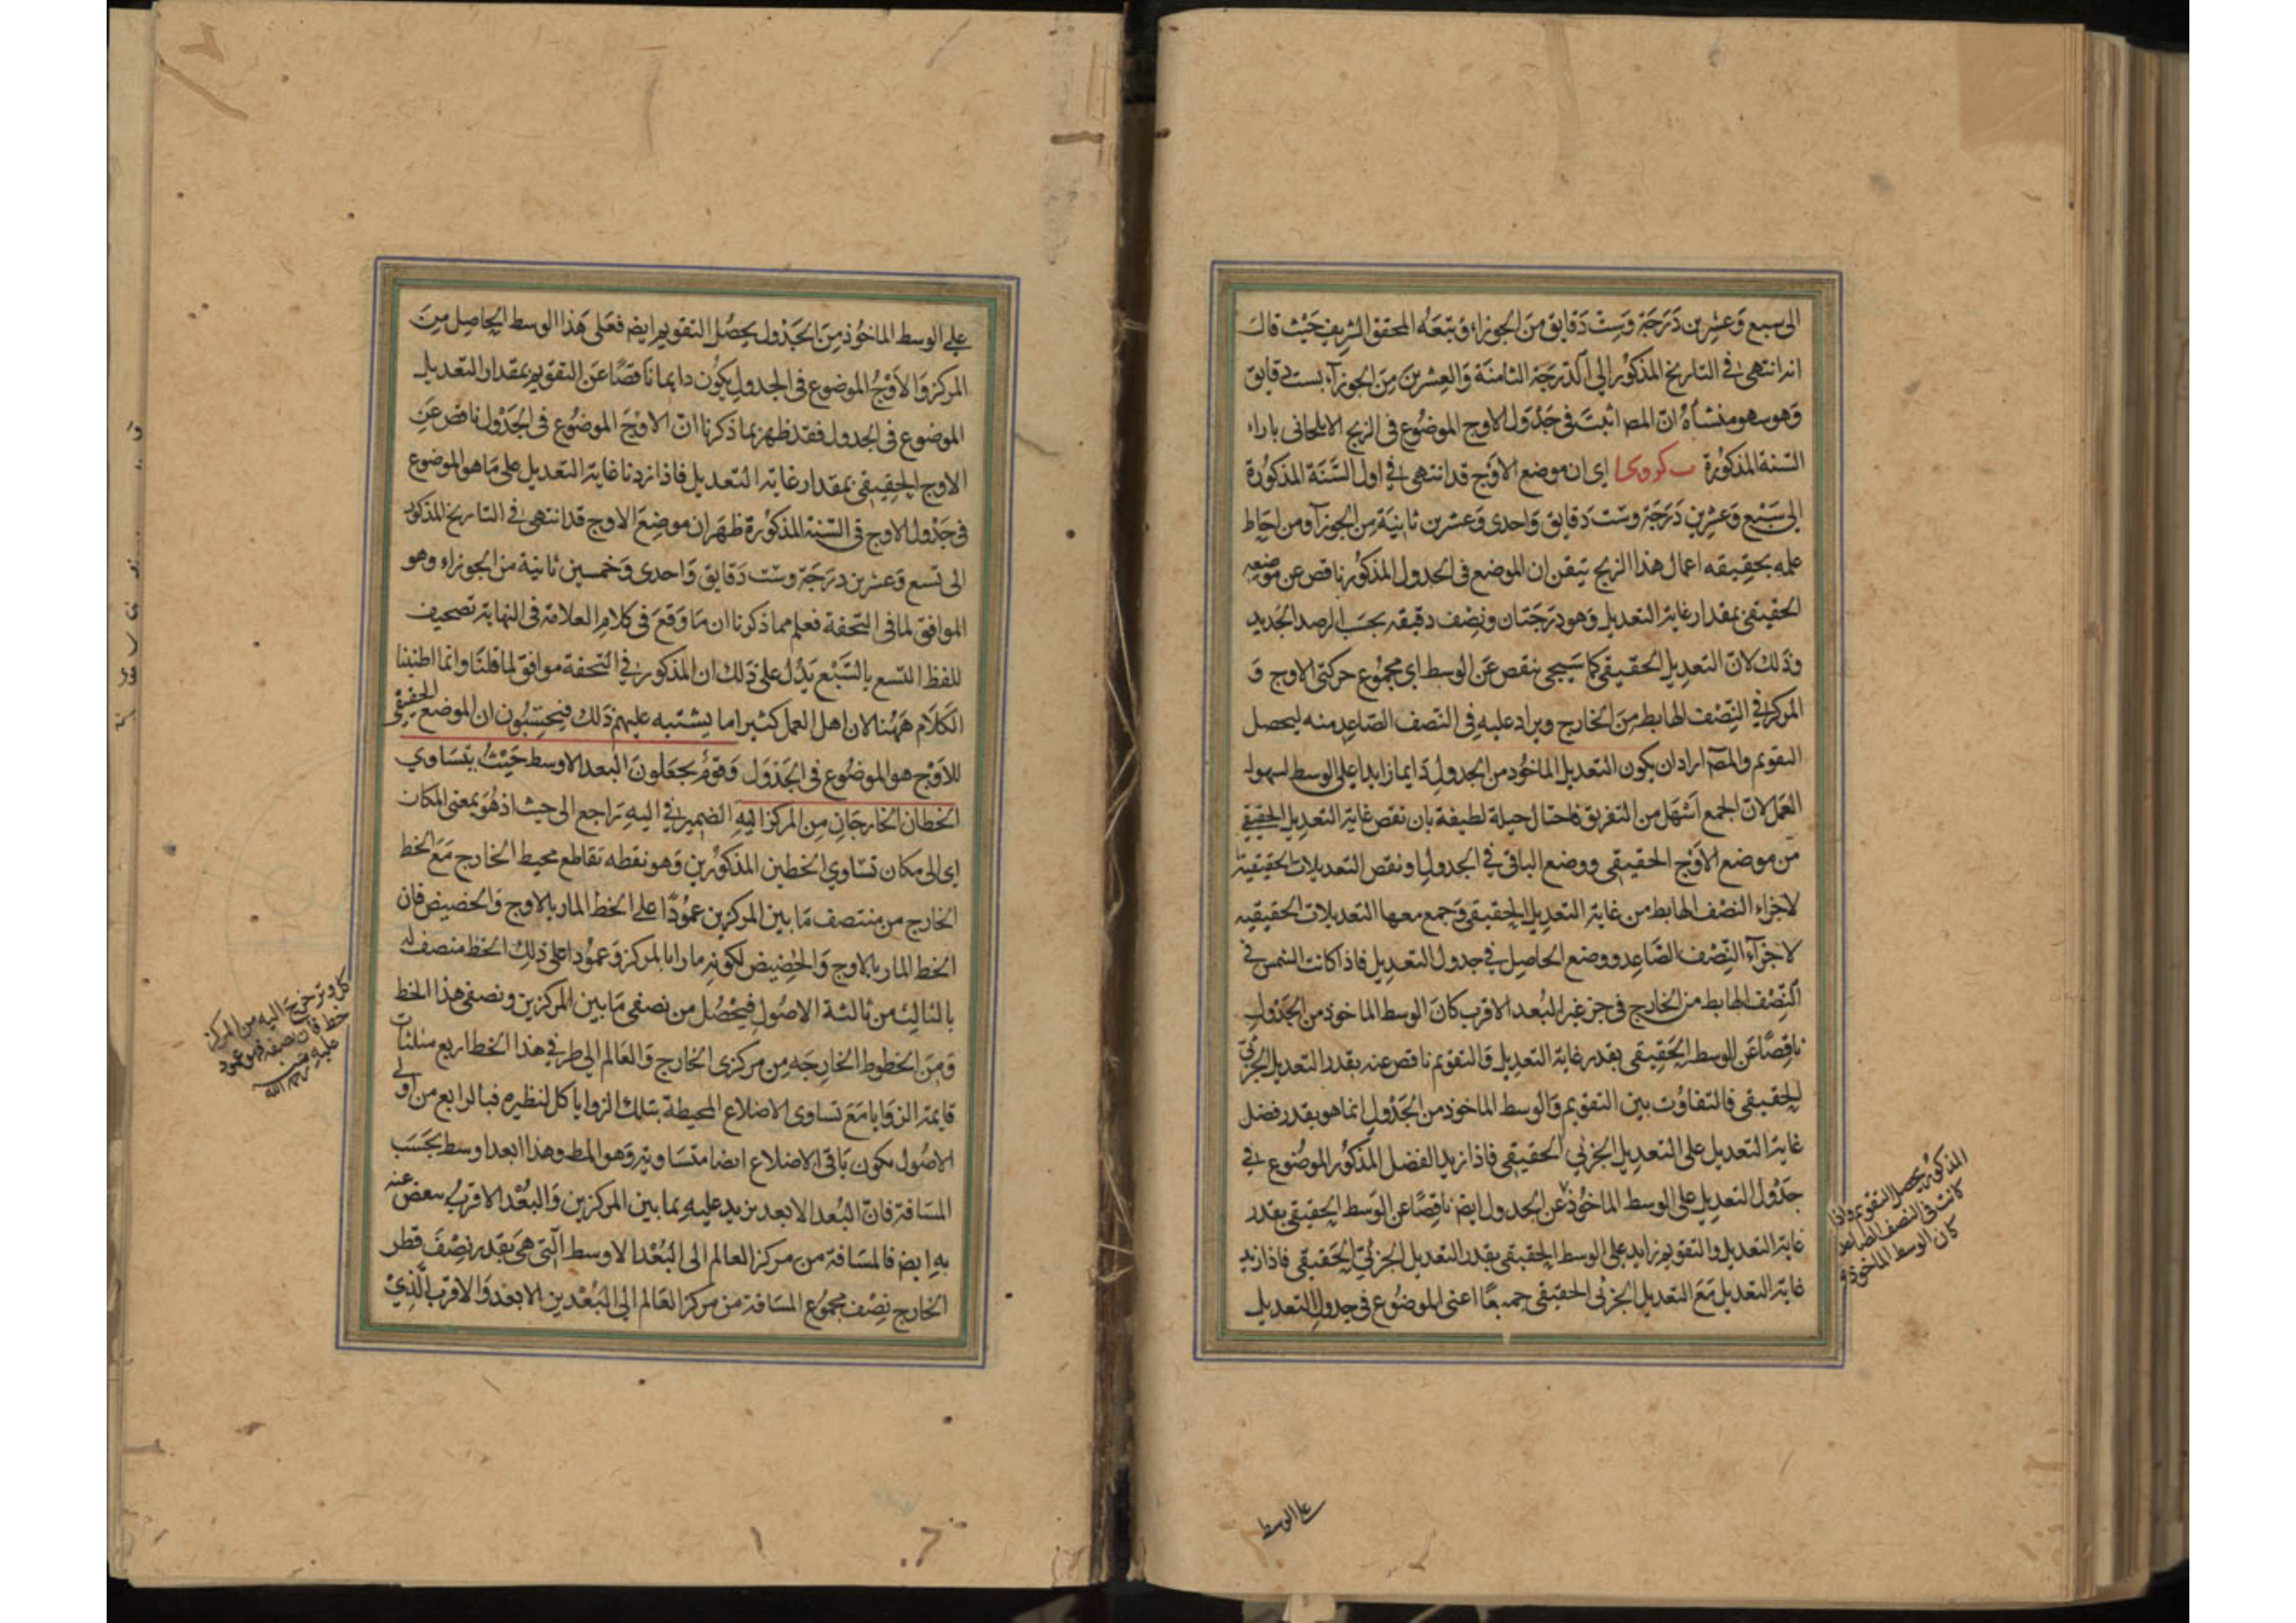 الى سبع وَعشرين دَرَجَة وَستّ دَقايق مَن الجوزاء وَتبعَه المحقق الشريف حَيْث قالَ
انه انتهى فى التاريخ المذكور الى الدّرَجَة الثامنَة وَالعِشرين مِن الجوزآء بست دقايق
وَهو سهو منشأهُ انّ المصـ اثبتَ فى جَدْوَل الاوج الموضُوع فى الزيج الايلخانى باراء
السّنة المذكورة ب كر و كا اى ان موضع الاوَج قد انتهى فى اول السَّنَة المذكوُرة
الى سَبْع وَعشرين دَرَجَة وستّ دَقايق وَاحدى وَعشرين ثانيَة مِن الجوزآ ومن احَاط
علمه بحقيقه اعمال هذا الزيج تيقن ان الموضع فى الجدول المذكور ناقص عن موضعه
الحقيقى بمقدار غاية التعديل وَهو دَرَجَتان ونصْف دقيقه بحسَب الرصد الجَديد
وذَلك لانّ التعديل الحقيقى كما سَيجى ينقص عَن الوسط اى مجموُع حركتى الاوج وَ
المركز فى النِّصْف الهابط مِنَ الخارج ويزاد عليه فى النّصف الصّاعِد منه ليحصل
التقويم والمصـ اراد ان يكون التعديل الماخُوذ من الجدول دَايما زايدا على الوسط لسهولـ
العَمل لان الجمع اَسْهَل من التفريق فاحتال حيلة لطيفة بان نقص غاية التعديل الحقيقى
مَن موضع الاوْج الحقيقى ووضع الباقى فى الجدول ونقص التعديلات الحقيقية
لاجزاء النصْف الهابط من غاية التعديل الحقيقى وَجمع معها التعديلات الحقيقيه
لاجزآء النِّصْف الصَّاعدِ ووضع الحاصِل فى جدول التعديل فاذا كانت الشمس فى
النّصْف الهابط من الخارج فى جز غير البُعد الاقرب كانَ الوسط الماخوذ من الجَدْولِ
ناقصًا عَن الوسط الحَقيقى بقدر غاية التعديل وَالتقويم ناقص عنه بقدر التعديل الجزئىّ
الحقيقى فالتفاوُت بين التقويم وَالوسط الماخوذ من الجَدْول انما هو بقدر فضل
غاية التعديل على التعديل الجزئي الحقيقى فاذا زيد الفضل المذكور الموضُوع فى
جَدْول التعديل على الوسط الماخوُذ عن الجدول ايضـ ناقصًا عن الوَسط الحقيقى بقدر
غاية التعديل والتقويم زايد على الوسط الحقيقى بقدر التعديل الجزئىّ الحَقيقى فاذا زيد
غاية التعديل مَعَ التعديل الجزئى الحقيقى جميعًا اعنى الموضوُع فى جدول التعديل
المذكوُر يحصل التقويم واذا
كانت فى النصف الصاعد
كان الوسط الماخوذ
على الوسط
على الوسط الماخُوذ مِنَ الجَدْول يحصُل التقويم ايضـ فعَلى هَذا الوسط الحاصِل مِنَ
المركز وَالاَوْجُ الموضوع فى الجدول يكوُن دايما ناقصًا عَن التقويم بمقدار التعديلـ
الموضوُع فى الجدول فقد ظهر بما ذكرنا انّ الاوْجَ الموضُوع فى الجَدْول ناقص عَنِ
الاوج الحَقيقى بمقدار غاية التعديل فاذا زدنا غاية التعديل على مَا هو الموضوع
فى جَدْول الاوج فى السّنة المذكوُرة ظهَر ان موضِعَ الاوج قد انتهى فى التاريخ المذكور
الى تسع وَعشرين دَرَجَة وستّ دَقايق وَاحدى وَخمسين ثانية من الجوزاء وهو
الموافق لما فى التّحفة فعلم مما ذكرنا ان مَا وَقعَ فى كلام العلامّة فى النهاية تصحيف
للفظ التسع بالسَّبْع يَدُل على ذَلك ان المذكور فى التحفة موافق لما قلنا وانما اطنبنا
الكلَام هَهُنا لان اهل العمل كثيرا ما يشتبه عليهم ذَلك فيحسِبُون ان الموضع الحقيقى
للاَوْج هو الموضُوع فى الجَدْوَل وَقوْمُ يجعَلونَ البعد الاوسط حَيْثُ يتسَاوي
الخطان الخارجَانِ مِن المركز اليهِ الضمير فى اليهِ رَاجع الى حيث اذ هُوَ بمعنى المكان
اى الى مكان تسَاوي الخطين المذكوُرين وَهو نقطه تقاطع محيط الخارج مَعَ الخط
الخارج من منتصف مَا بين المركزين عموُدًا على الخط المار بالاوج وَالحضيض فان
الخط المار بالاوج وَالحضيض لكونه مارا بالمركز وَعموُدا على ذلِك الخط منصف له
بالثالث من ثالثة الاصُول فيحصُل من نصفى مَا بين المركزين ونصفى هذا الخط
وَمِنَ الخطوط الخارجَه مِن مركزى الخارج وَالعَالم الى طرفى هذا الخط اربع مثلثات
قايمة الزوَايا مَعَ تساوى الاضلاع المحيطة بتلك الزوايا كل لنظيره فبالرابع من اولى
الاصُول يكون بَاقى الاضلاع ايضا متسَاوية وَهو المط وهذا ابعد اوسط بحَسَب
المسَافة فانّ البُعد الابعد يزيد عليهِ بما بين المركزين وَالبُعْد الاقربُ ينقص عنه
بهِ ايضـ فالمسَافة من مركز العالم الى البُعْد الاوسط الّتى هىَ بقدر نِصْفَ قطر
الخارج نِصْف مجموُع المسَافة من مركز العَالم الى البُعْدين الابعد وَالاقرب الَّذيْ
كل وتر خرج اليه من المركز
خط فان نصفه فهو عمود
عليه